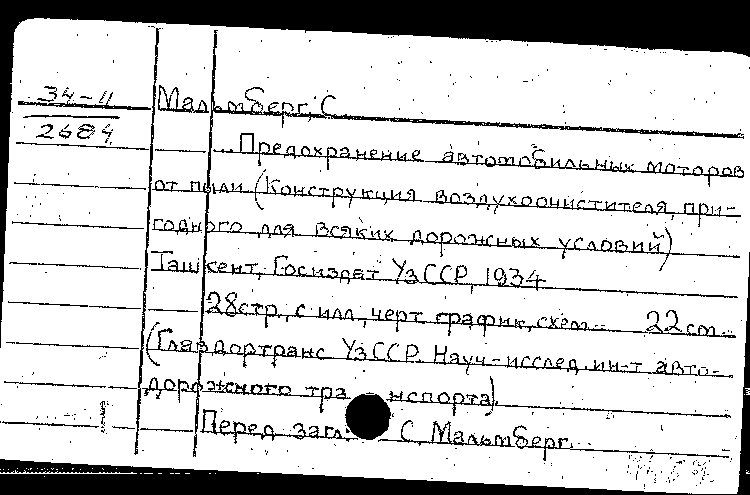 34-11
2684
Мальмберг, С.
... Предохранение автомобильных моторов
от пыли (Конструкция воздухоочистителя, при-
годного для всяких дорожных условий)
Ташкент, Госиздат УзССР, 1934
28стр., с илл., черт. график., схем. 22 см.
(Главдортранс УзССР. Науч.-исслед. ин-т авто-
дорожного тра нспорта).
Перед загл: С. Мальмберг.